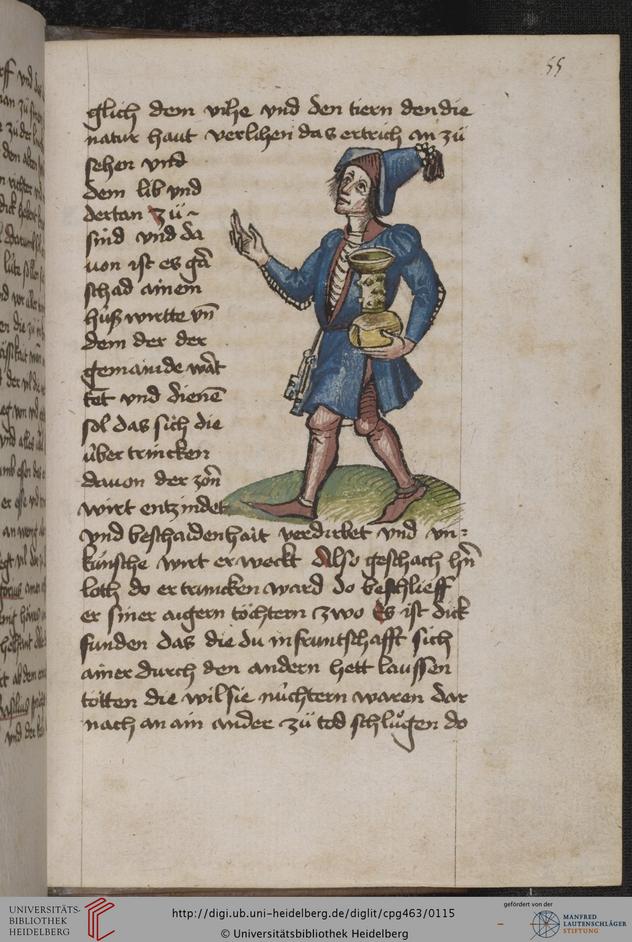 55
glich dem vihe vnd den tiern den die
natur haut verlihen das ertrich an zů
sehen vnd
dem lib vnd
dertan zů
sind vnd da
uon ist es gar
schad ainem
huß wirtte vn̄
dem der der
gemainde wāt
tet vnd dienē
sol das sich die
über trincken
dauon der zōn
wirt entzindet
vnd beschaidenhait verdirbet vnd vn=
künsche wirt erweckt Also geschach hn̄
loth do er truncken ward do beschlieff
er siner aigern töchtern zwo Es ist dick
funden das die du in fruntschafft sich
ainer durch den andern hett laussen
tötten die wil sie nüchtern waren dar
nach an ain ander zü tod schlůgen do
UNIVERSITÄTS-
BIBLIOTHEK
HEIDELBERG
http://digi.ub.uni-heidelberg.de/diglit/cpg463/0115
© Universitätsbibliothek Heidelberg
gefördert von der
MANFRED
LAUTENSCHLÄGER
STIFTUNG